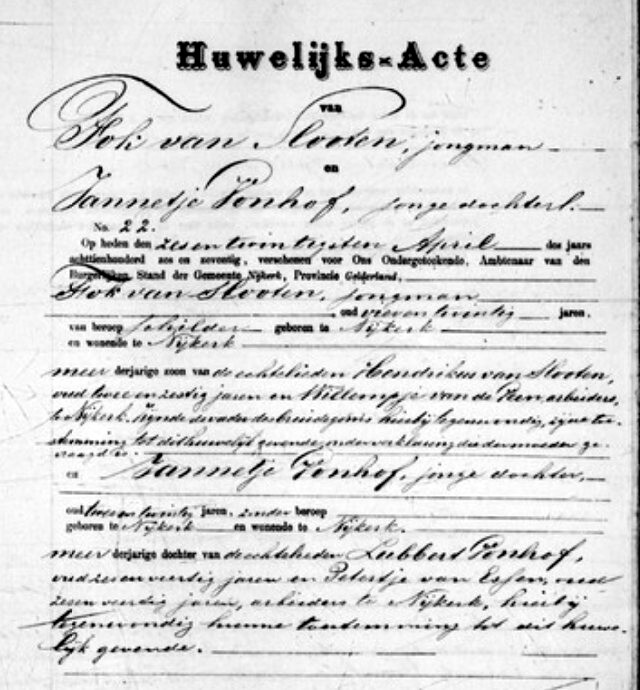 Huwelijks-Acte
van
Fok van Slooten, jongman
en
Jannetje Vonhof, jonge dochter.
No. 22.
Op heden den zesentwintigsten April des jaars
achttienhonderd zes en zeventig, verschenen voor Ons Ondergeteekende, Ambtenaar van den
Burgerlijken Stand der Gemeente Nijkerk, Provincie Gelderland,
Fok van Slooten, jongman
oud vierentwintig jaren,
van beroep schilder geboren te Nijkerk
en wonende te Nijkerk
meerderjarige zoon van de echtelieden Hendrikus van Slooten,
oud twee en zestig jaren en Willempje van de Pen, arbeiders,
te Nijkerk. Zijnde de vader des bruidegoms hierbij tegenwoordig, zijne toe-
stemming tot dit huwelijk gevende, onder verklaring die der moeder ge-
en Jannetje Vonhof, jonge dochter,
oud twee en twintig jaren, zonder beroep
geboren te Nijkerk en wonende te Nijkerk.
meerderjarige dochter van de echtelieden Lubbert Vonhof,
oud zes en veertig jaren en Petertje van Essen, oud
zes en veertig jaren, arbeiders te Nijkerk, hierbij
tegenwoordig hunne toestemming tot dit huwe-
lijk gevende.